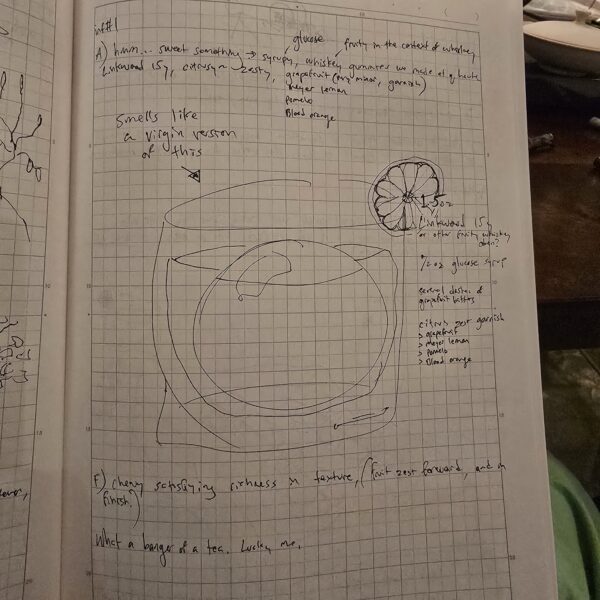 inf#1
glucose
fruity in the context of whiskey
A) hmm... sweet something → syrupy, whiskey gummies we made at
Linkwood 15y, citrusy ~ zesty, grapefruit ( garnish)
meyer lemon
pomelo
Blood orange
smells like
a virgin version
of this
1.5oz
Linkwood 15y
or other fruity whiskey
oz glucose syrup
several dashes of
grapefruit bitters
citrus zest garnish
> grapefruit
> meyer lemon
> pomelo
> Blood orange
F) chewy satisfying richness in texture, (fruit zest forward, and in
finish.)
What a banger of a tea. Lucky me.